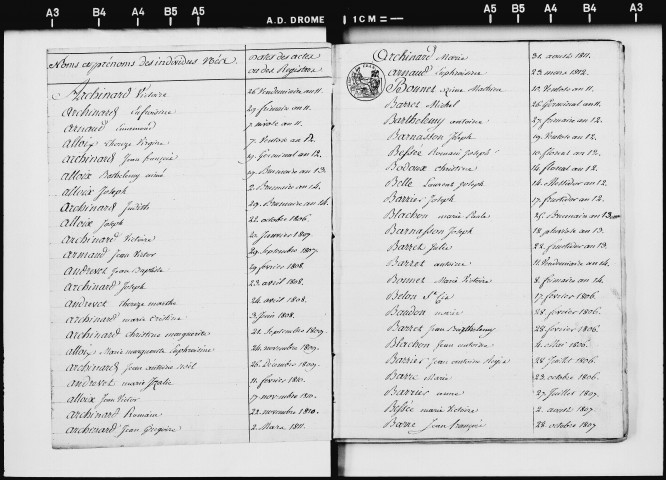 A3 B4 A4 B5 A5 A.D. DROME 1 CM = A5 B5 A4 B4 A3
Noms et prénoms des individus Nées. Dates des actes
ou des Registres
Archinard Victoire 26 Vendemiaire an 11.
Archinard Eufrosine 29 frimaire an 11.
Arnaud Emmanuel 7 nivose an 11.
Alloix Therese Virginie 7. Ventose an 12.
Archinard Jean françois 29 Germinal an 12.
Alloix Barthelemy aimé 29 Brumaire an 13.
Alloix Joseph 2. Brumaire an 14.
Archinard Judith 29. Brumaire an 14.
Alloix Joseph 22. octobre 1806.
Archinard Victoire 20 Janvier 1807.
Armand Jean Victor 20. Septembre 1807.
Andrevet Jean Baptiste 29 février 1808.
Archinard Joseph 23. avril 1808.
Andrevet Thereze marthe 24. avril 1808.
Archinard marie Cristine 3 Juin 1808.
Archinard christine marguerite 21. Septembre 1809.
Alloix Marie marguerite Euphrosine 24. novembre 1809.
Archinard Jean antoine noël 26. Décembre 1809.
Andrevet marie Rosalie 11. février 1810.
Alloix Jean Victor 17. novembre 1810.
Archinard Romain 22. novembre 1810.
Archinard Jean Gregoire 2. Mars 1811.
Archinard Marie 31. aoust 1811.
Arnaud Euphrosine 23. mars 1812.
Bonnet Reine Mathieu 10. Ventose an 11.
Barret Michel 26 Germinal an 11.
Barthelemy antoine 27. frimaire an 12.
Barnasson Joseph 19. Ventose an 12.
Bessée Romain Joseph 10. floreal an 12.
Bodoux christine 14. floreal an 12.
Belle Laurent Joseph 14. Messidor an 12.
Barrier Joseph 17. fructidor an 12.
Blachon marie Paule 26. Brumaire an 13.
Barnasson Joseph 18. pluviose an 13.
Barret Julie 28. fructidor an 13.
Barrot antoine 11. Vendemiaire an 14.
Bonnet Marie Victoire 8. frimaire an 14.
Belon 17. février 1806.
Baudon marie 28. février 1806.
Barret Jean Barthelemy 28. février 1806.
Blachon Jean antoine 4. Mai 1806.
Barrier Jean antoine Régis 28 Juillet 1806.
Barre Marie 23. octobre 1806.
Barrier anne 27. Juillet 1807.
Bessée marie Victoire 2. aoust 1807.
Barre Jean françois 28. octobre 1807